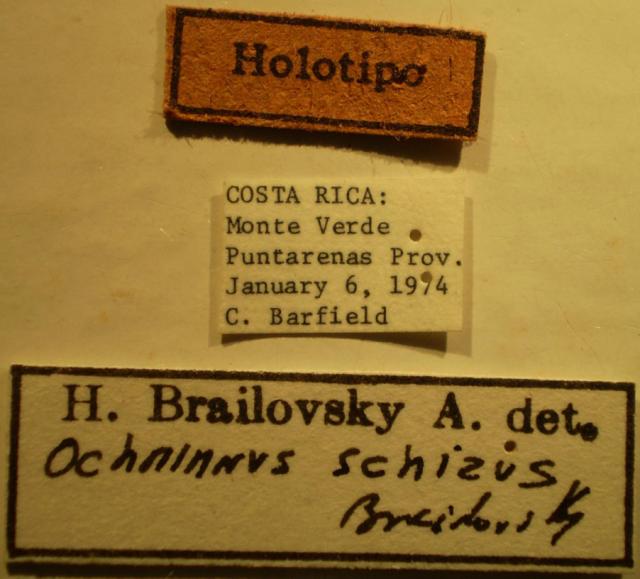 Holotipo
COSTA RICA:
Monte Verde
Puntarenas Prov.
January 6, 1974
C. Barfield
H. Brailovsky A. det.
Ochrinnus schizus
Brailovsky